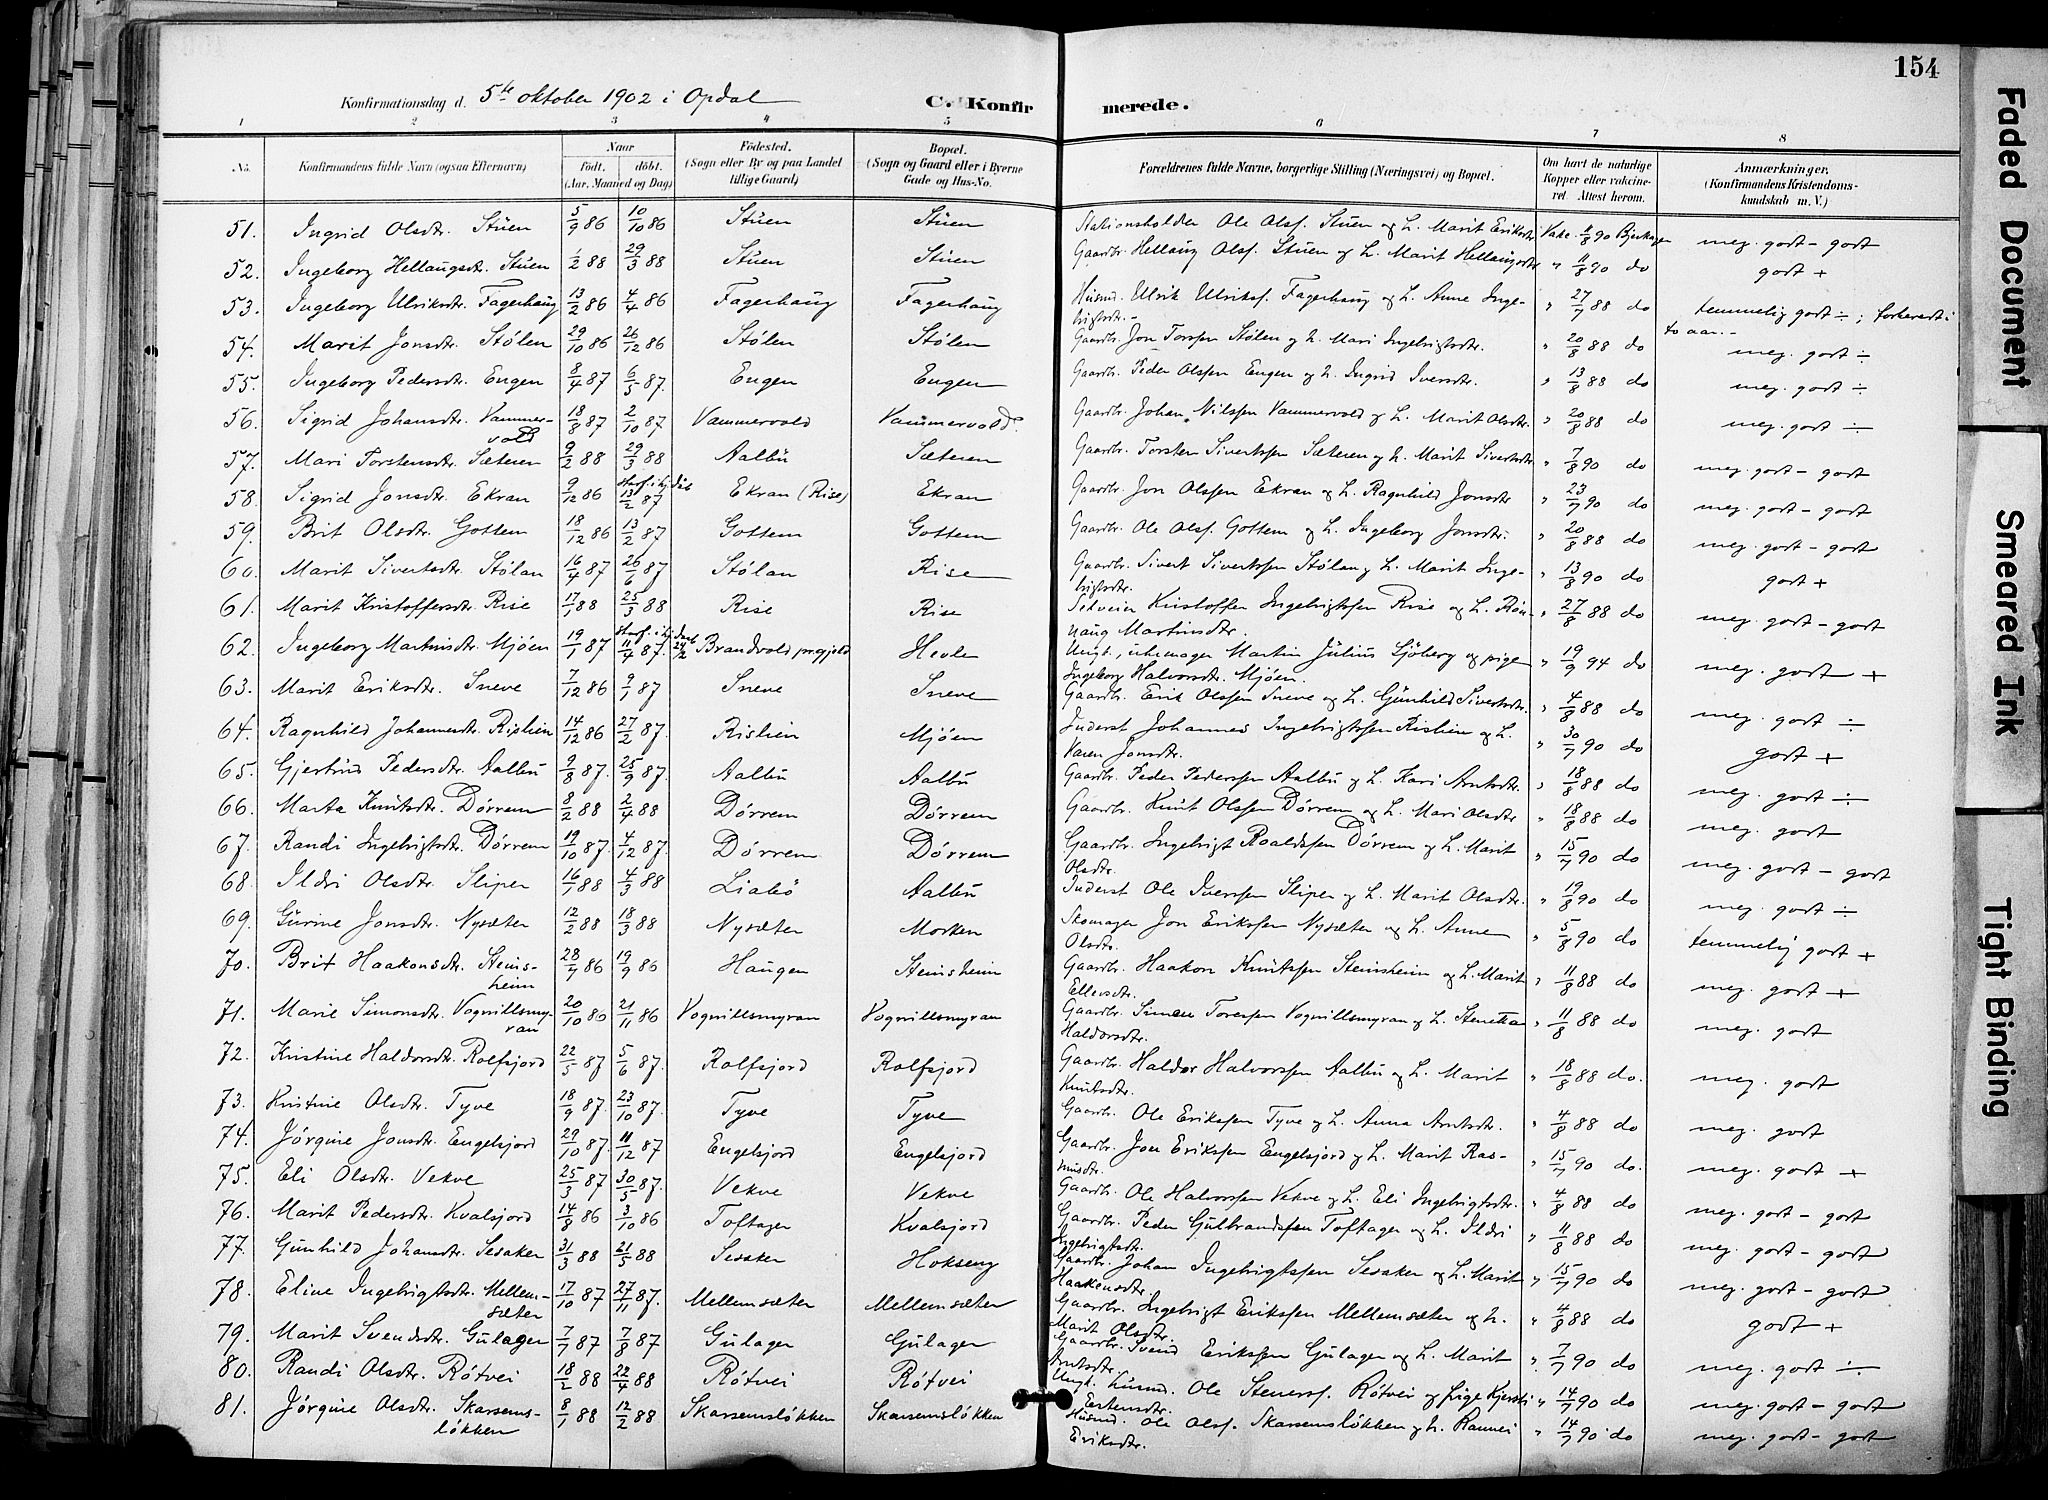 154
Konfirmationsdag d. 5te oktober 1902 i Opdal C. Konfirmerede.
1 2 3 4 5 6 7 8
No. Konfirmandens fulde Navn (ogsaa Efternavn) Naar født. døbt. (Aar, Maaned og Dag) Fødested. (Sogn eller By og paa Landet tillige Gaard) Bopæl. (Sogn og Gaard eller i Byerne Gade og Hus-No. Forældrenes fulde Navne, borgerlige Stilling (Næringsvei) og Bopæl. Om havt de naturlige Kopper eller vakcineret. Attest herom. Anmærkninger. (Konfirmandens Kristendomskundskab m. V.)
51. Ingrid Olsdtr. Stuen 5/9 86 10/10 86 Stuen Stuen Stationsholder Ole Olss. Stuen og h. Marit Eriksdtr. Vakc. 11/8 90 meg. godt - godt
52. Ingeborg Hellaugsdtr. Stuen 1/2 88 29/3 88 Stuen Stuen Gaardbr. Hellaug Olss. Stuen og h. Marit Hellaugsdtr. " 11/8 90 do godt +
53. Ingeborg Ulriksdtr. Fagerhaug 13/2 86 4/4 86 Fagerhaug Fagerhaug Husmd. Ulrik Ulrikss. Fagerhaug og h. Anne Inge-
brigtsdtr. - " 27/7 88 do temmelig godt ÷ ;
to aar. -
54. Marit Jonsdtr. Stölen 29/10 86 26/12 86 Stölen Stölen Gaardbr. Jon Torssen Stölen og h. Mari Ingebrigtsdtr. " 20/8 88 do meg. godt ÷
55. Ingeborg Pedersdtr. Engen 8/4 87 6/5 87. Engen Engen Gaardbr. Peder Olssen Engen og h. Ingrid Iversdtr. " 13/8 88 do meg. godt ÷
56. Sigrid Johansdtr. Vammer-
vold 18/8 87 2/10 87 Vammervold Vammervold. Gaardbr. Johan Nilssen Vammervold og h. Marit Olsdtr. " 20/8 88 do meg. godt ÷
57. Mari Torstensdtr. Sæteren 9/2 88 29/3 88 Aalbu Sæteren Gaardbr. Torsten Sivertssen Sæteren og h. Marit Sivertsdtr. " 7/8 90 do meg. godt - godt
58. Sigrid Jonsdtr. Ekran 9/12 86 13/2 87 Ekran (Rise) Ekran Gaardbr. Jon Olssen Ekran og h. Ragnhild Jonsdtr " 23/7 90 do meg. godt - godt
59. Brit Olsdtr. Gottem 18/12 86 13/2 87 Gottem Gottem Gaardbr. Ole Olss. Gottem og h. Ingeborg Jonsdtr. " 20/8 88 do meg. godt - godt
60. Marit Sivertsdtr. Stölan 16/4 87 26/6 87 Stölan Rise Gaardbr. Sivert Sivertssen Stölan og h. Marit Inge-
brigtsdtr. " 13/8 90 do godt +
61. Marit Kristoffersdtr. Rise 17/1 88 25/3 88 Rise Rise Kristoffer Ingebrigtssen Rise og h. Rön-
naug Martinsdtr. " 27/8 88 do meg. godt - godt
62. Ingeborg Martinsdtr. Mjöen 19/1 87 11/4 87. Brandvold prgjeld Hevle Ungk., urmager Martin Julius Sjöberg og pige
Ingeborg Halvorsdtr. Mjöen. " 19/9 94 do meg. godt +
63. Marit Eriksdtr. Sneve 7/12 86 9/1 87 Sneve Sneve Gaardbr. Erik Olssen Sneve og h. Gunhild Sivertsdtr. " 4/8 88 do meg. godt ÷
64. Ragnhild Johannesdtr. Rislien 14/12 86 27/2 87. Rislien Mjöen Inderst Johannes Ingebrigtssen Rislien og h.
Karen Jonsdtr. " 30/7 90 do godt +
65. Gjertrud Pedersdtr. Aalbu 9/8 87. 25/9 87. Aalbu Aalbu Gaardbr. Peder Pederssen Aalbu og h. Kari Arntsdtr. " 18/8 88 do meg. godt ÷
66. Marta Knutsdtr. Dörrem 8/2 88 2/4 88 Dörrem Dörrem Gaardbr. Knut Olssen Dörrem og h. Mari Olsdtr " 18/8 88 do meg. godt
67. Randi Ingebrigtsdtr. Dörrem 19/10 87. 4/12 87. Dörrem Dörrem Gaardbr. Ingebrigt Roaldssen Dörrem og h. Marit
Olsdtr. " 15/7 90 do meg. godt - godt
68. Ildri Olsdtr. Sliper 16/1 88 4/3 88 Liabö Aalbu Inderst Ole Iverssen Sliper og h. Marit Olsdtr. " 19/8 90 do meg. godt ÷
69. Gurine Jonsdtr. Nysæter 12/2 88 18/3 88 Nysæter Morken Skomager Jon Erikssen Nysæter og h. Anne
Olsdtr. " 5/8 90 do temmelig godt +
70. Brit Haakonsdtr. Steins-
heim 28/7 86 19/9 86 Haugen Steinsheim Gaardbr. Haakon Knutssen Steinsheim og h. Marit
Ellevsdtr. " 11/8 88 do meg. godt +
71. Marie Simonsdtr. Vognillsmy-
ran 20/10 86 21/11 86 Vognillsmyran Vognillsmyran Gaardbr. Simen Toressen Vognillsmyran og h.
Haldorsdtr. " 11/8 88 do meg. godt
72. Kristine Haldorsdtr. Rolfsjord 22/5 87 5/6 87. Rolfsjord Rolfsjord Gaardbr. Haldor Halvorssen Aalbu og h. Marit
Knutsdtr. " 18/8 88 do. meg. godt
73. Kristine Olsdtr. Tyve 18/9 87. 23/10 87. Tyve Tyve Gaardbr. Ole Erikssen Tyve og h. Anna Arntsdtr. " 4/8 88 do meg. godt
74. Jörgine Jonsdtr. Engelsjord 29/10 87. 11/12 87 Engelsjord Engelsjord Gaardbr. Jon Erikssen Engelsjord og h. Marit Ras-
musdtr. " 15/7 90 do. meg. godt +
75. Eli Olsdtr. Vekve 25/3 87 30/5 87. Vekve Vekve Gaardbr. Ole Halvorssen Vekve og h. Eli Ingebrigtsdtr. " 4/8 88 do meg. godt - godt
76. Marit Pedersdtr. Kvalsjord 14/8 86 3/10 86 Toftager Kvalsjord Gaardbr. Peder Gulbrandssen Toftager og h. Ildri
Ingebrigtsdtr. " 11/8 88 do meg. godt - godt
77. Gunhild Johansdtr. Sesaker 31/3 88 21/5 88 Sesaker Hokseng Gaardbr. Johan Ingebrigtssen Sesaker og h. Marit
Haakonsdtr. " 15/7 90 do meg. godt - godt
78. Eline Ingebrigtsdtr. Mellem-
sæter 17/10 87 27/11 87. Mellemsæter Mellemsæter Gaardbr. Ingebrigt Erikssen Mellemsæter og h.
Marit Olsdtr. " 4/8 88 do godt +
79. Marit Svendsdtr. Gulager 7/7 87 7/8 87 Gulager Gulager Gaardbr. Svend Erikssen Gulager og h. Marit
Arntsdtr. " 7/7 90 do meg. godt ÷
80. Randi Olsdtr. Rötvei 18/2 88 22/4 88 Rötvei Rötvei Ungk. husmd. Ole Stenerss. Rötvei og pige Kjersti
Estensdtr. " 14/7 90 do meg. godt - godt
81. Jörgine Olsdtr. Skarsems-
lökken 8/1 88 12/2 88 Skarsemslökken Skarsemslökken Husmd. Ole Olss. Skarsemslökken og h. Rannei
Eriksdtr. " 14/7 90 do meg. godt - godt
Faded Document
Smeared Ink
Tight Binding